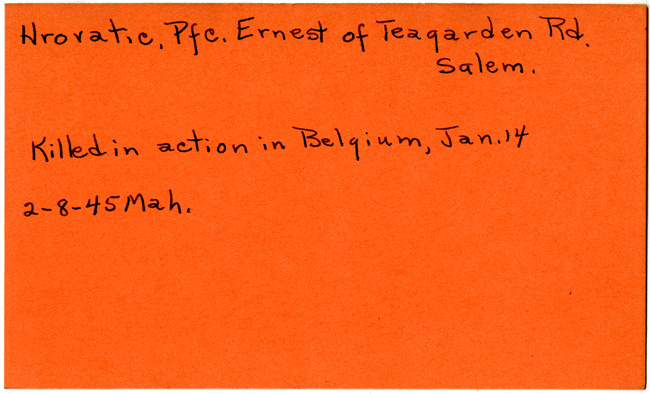 Hrovatic, Pfc. Ernest of Teagarden Rd.
Salem.
Killed in action in Belgium, Jan. 14
2-8-45 Mah.